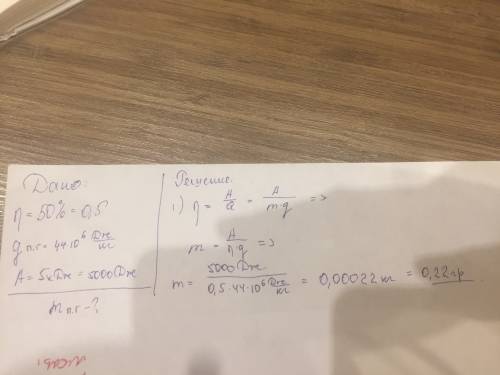 Дано:
η = 50% = 0,5
q п.г = 44·10⁶ Дж/кг
A = 5кДж = 5000Дж
m п.г - ?
Решение:
1) η = A/Q = A/m·q =>
m = A/η·q =>
m = 5000Дж/0,5·44·10⁶ Дж/кг = 0,00022кг = 0,22гр